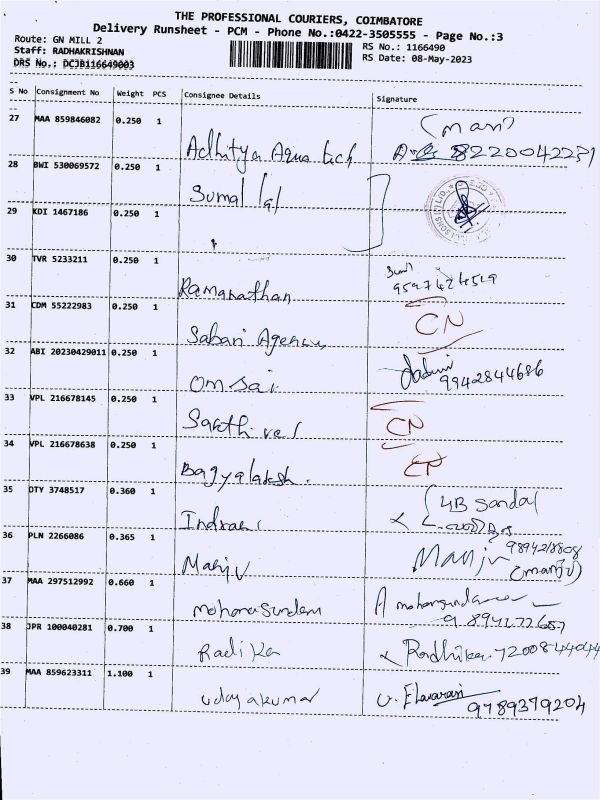 THE PROFESSIONAL COURIERS, COIMBATORE
Delivery Runsheet - PCM - Phone No.:0422-3505555 - Page No.:3
Route: GN MILL 2
RS No.: 1166490
Staff: RADHAKRISHNAN
RS Date: 08-May-2023
DRS No.: DCJB116649003
S No Consignment No Weight PCS Consignee Details Signature
27 MAA 859846082 0.250 1 Adhitya Aqua tech (mani) 8220042231
28 BWI 530069572 0.250 1 Sumal lal
29 KDI 1467186 0.250 1
30 TVR 5233211 0.250 1 Ramanathan
31 CDM 55222983 0.250 1 Sabari Agency CN
32 ABI 20230429011 0.250 1 Om Sai 9942844686
33 VPL 216678145 0.250 1 Sakthivel CN
34 VPL 216678638 0.250 1 Bagyalaksh. CN
35 OTY 3748517 0.360 1 Indrani 4B Sandal
36 PLN 2266086 0.365 1 Manju Manju (manju)
37 MAA 297512992 0.660 1 mohanasundam
38 JPR 100040281 0.700 1 Radika Radhika 7200844044
39 MAA 859623311 1.100 1 Udayakumar 9789379204